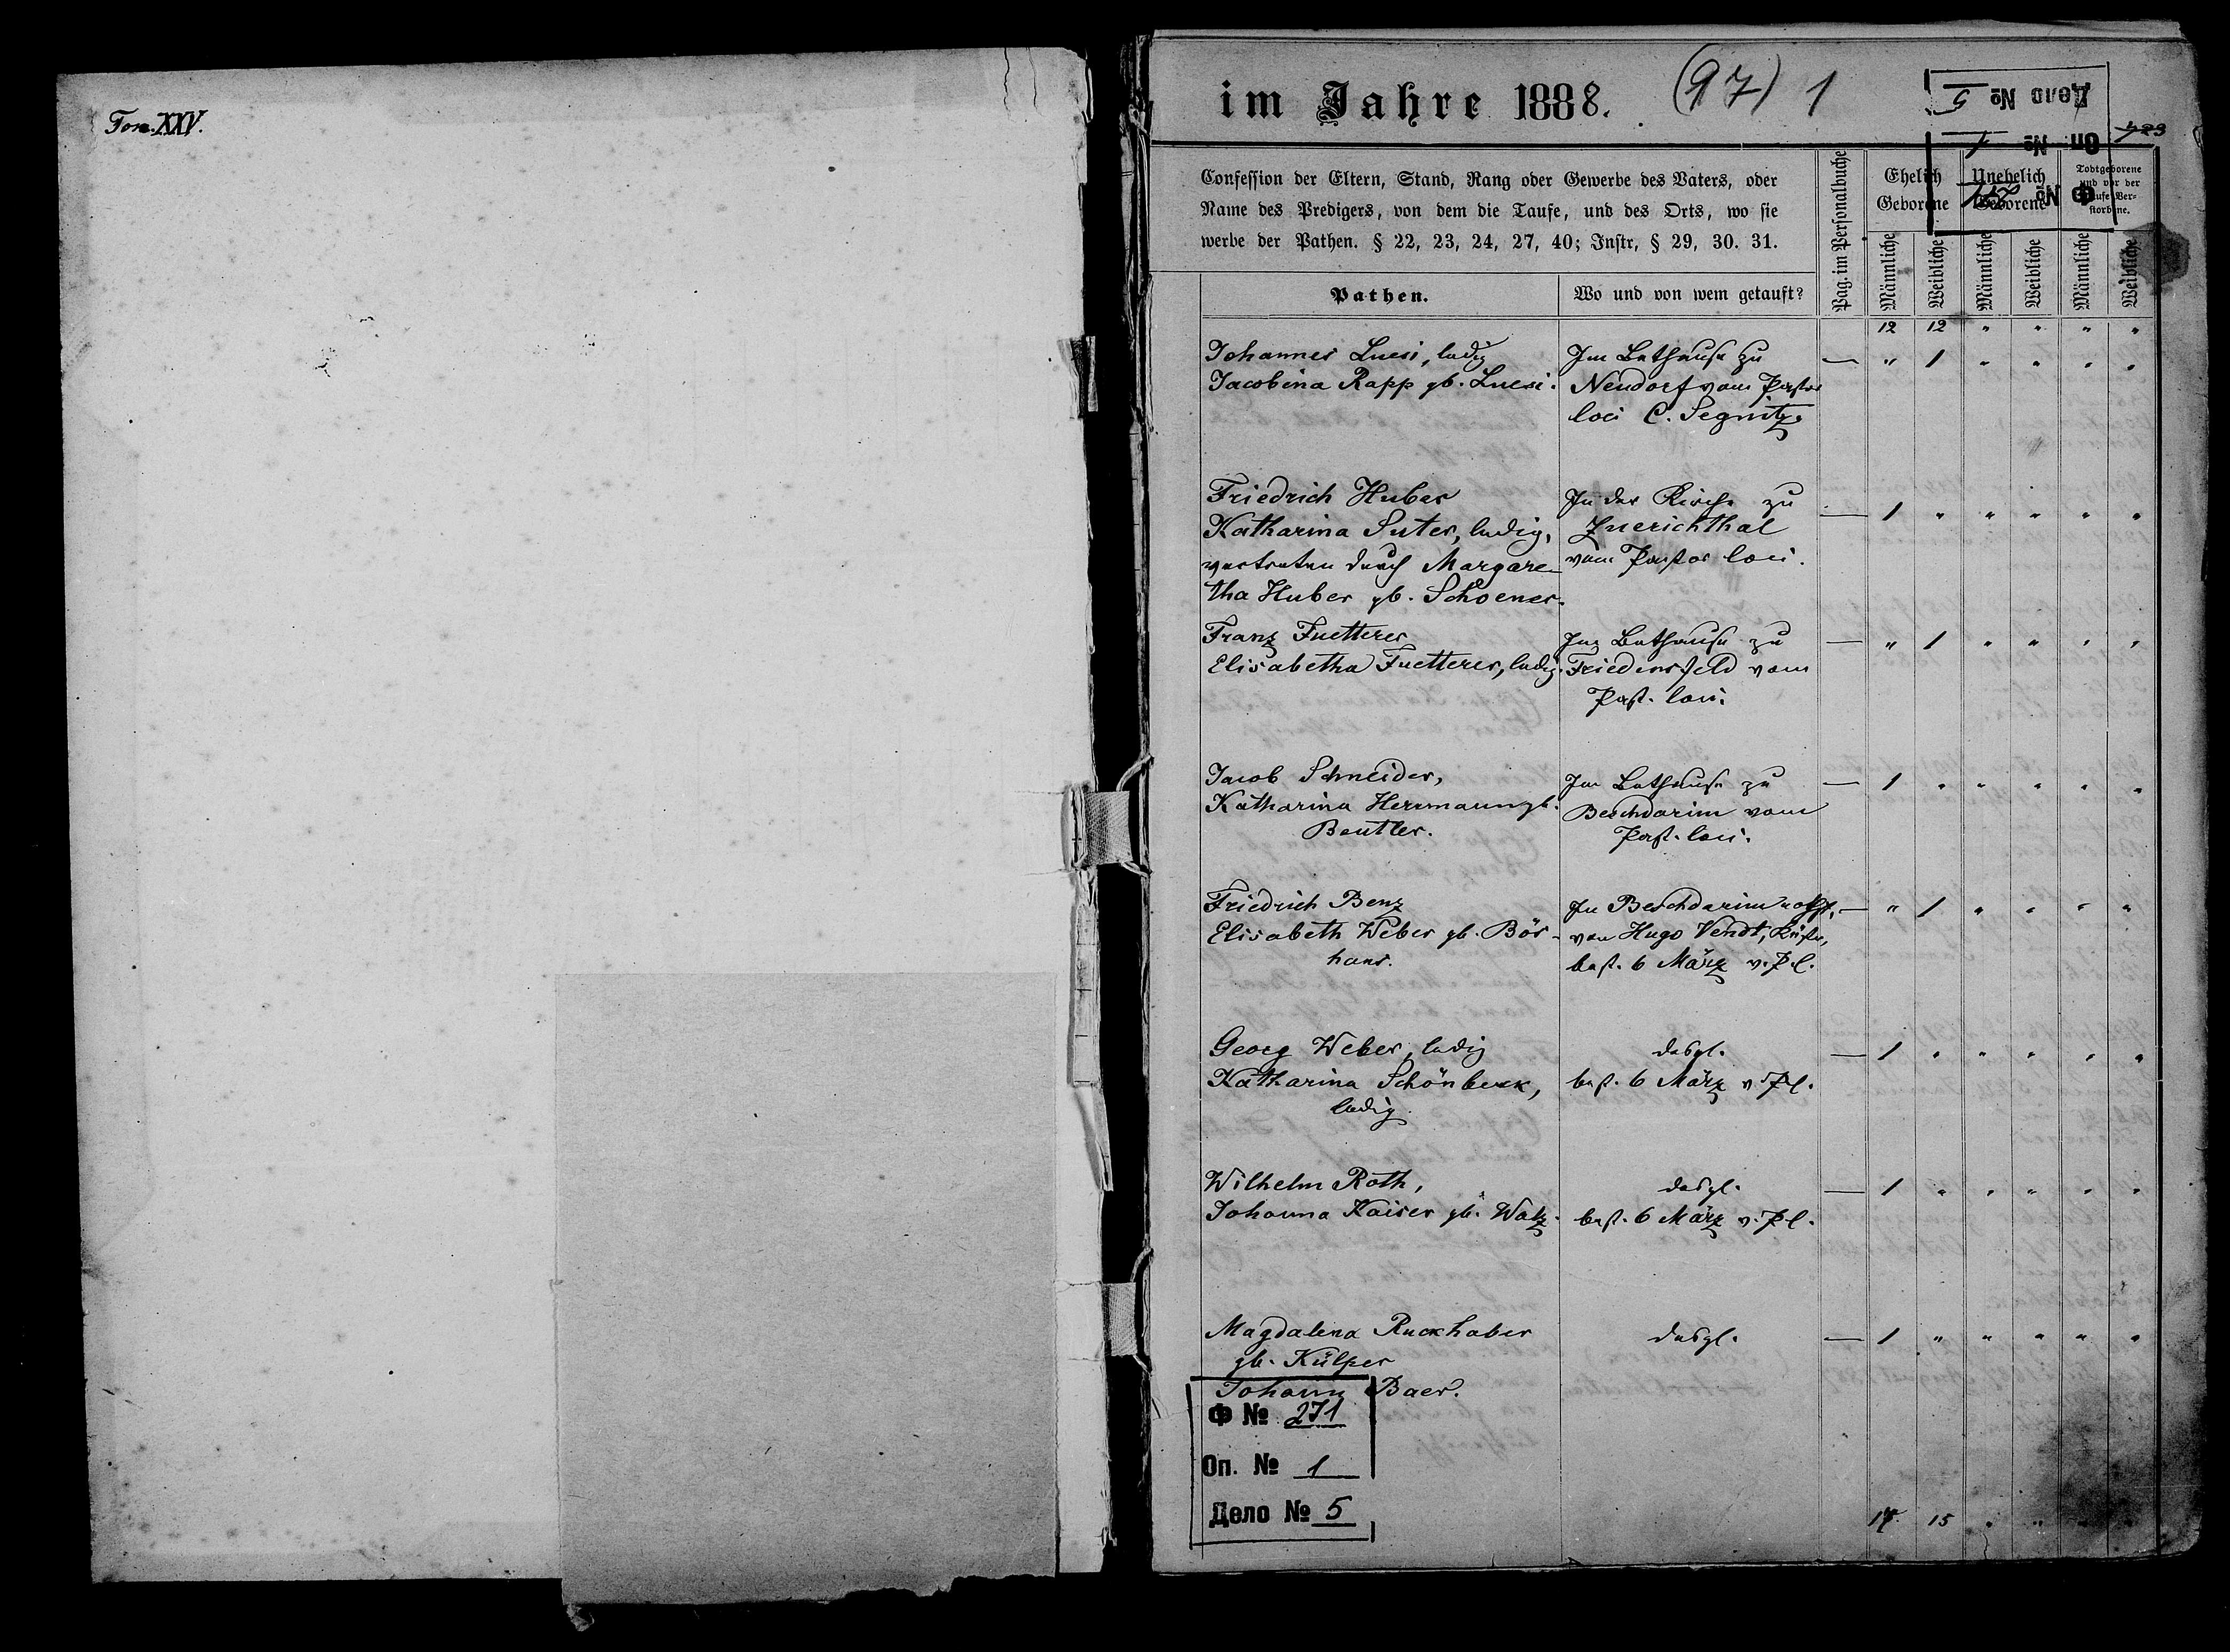 Tom. XXV.
im Jahre 1888. (97) 1
Дело № 5
Оп. № 1
Ф № 271
423
Confession der Eltern, Stand, Rang oder Gewerbe des Vaters, oder
Name des Predigers, von dem die Taufe, und des Orts, wo sie
werbe der Pathen. § 22, 23, 24, 27, 40; Instr, § 29, 30. 31.
Pathen.
Wo und von wem getauft?
Pag. im Personalbuche
Ehelich
Geborene
Unehelich
Geborene
Todtgeborene
und vor der
Taufe Ver-
storbene.
Männliche
Weibliche
Männliche
Weibliche
Männliche
Weibliche
12 12 " " " "
Johannes Luesi, ledig
Jacobina Rapp gb. Luesi.
Im Bethause zu
Neudorf vom Pastor
loci C. Segnitz.
— " 1 " " " "
Friedrich Huber
Katharina Suter, ledig,
vertreten durch Margare-
tha Huber gb. Schoener.
In der Kirche zu
Zuerichthal
vom Pastor loci.
— 1 " " " " "
Franz Fuetterer
Elisabetha Fuetterer, ledig.
Im Bethause zu
Friedensfeld vom
Past. loci.
— " 1 " " " "
Jacob Schneider,
Katharina Herrmann gb.
Beutler.
Im Bethause zu
Beschdarim vom
Past. loci.
— 1 " " " " "
Friedrich Benz
Elisabeth Weber gb. Bös-
hans.
In Beschdarim nothgt.
von Hugo Wendt, Küster,
best. 6 März v. P. l.
— " 1 " " " "
Georg Weber, ledig
Katharina Schönbeck,
ledig.
desgl.
best. 6 März v. P. l.
— 1 " " " " "
Wilhelm Roth,
Johanna Kaiser gb. Walz.
desgl.
best. 6 März v. P. l.
— 1 " " " " "
Magdalena Ruckhaber
gb. Külper
Johann Baer.
desgl.
— 1 " " " " "
Ф № 271
Оп. № 1
Дело № 5
17 15 " " " "